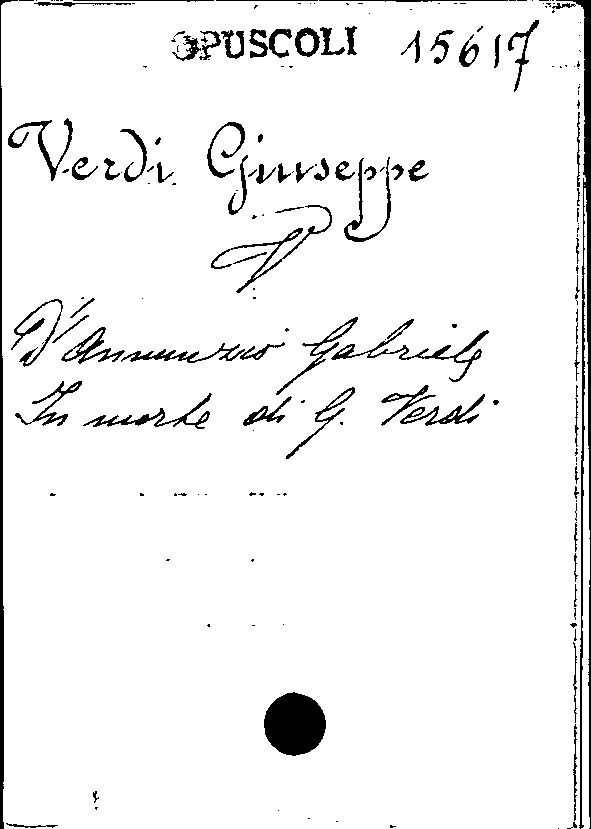 OPUSCOLI 15617
Verdi Giuseppe
V
D'Annunzio Gabriele
In morte di G. Verdi